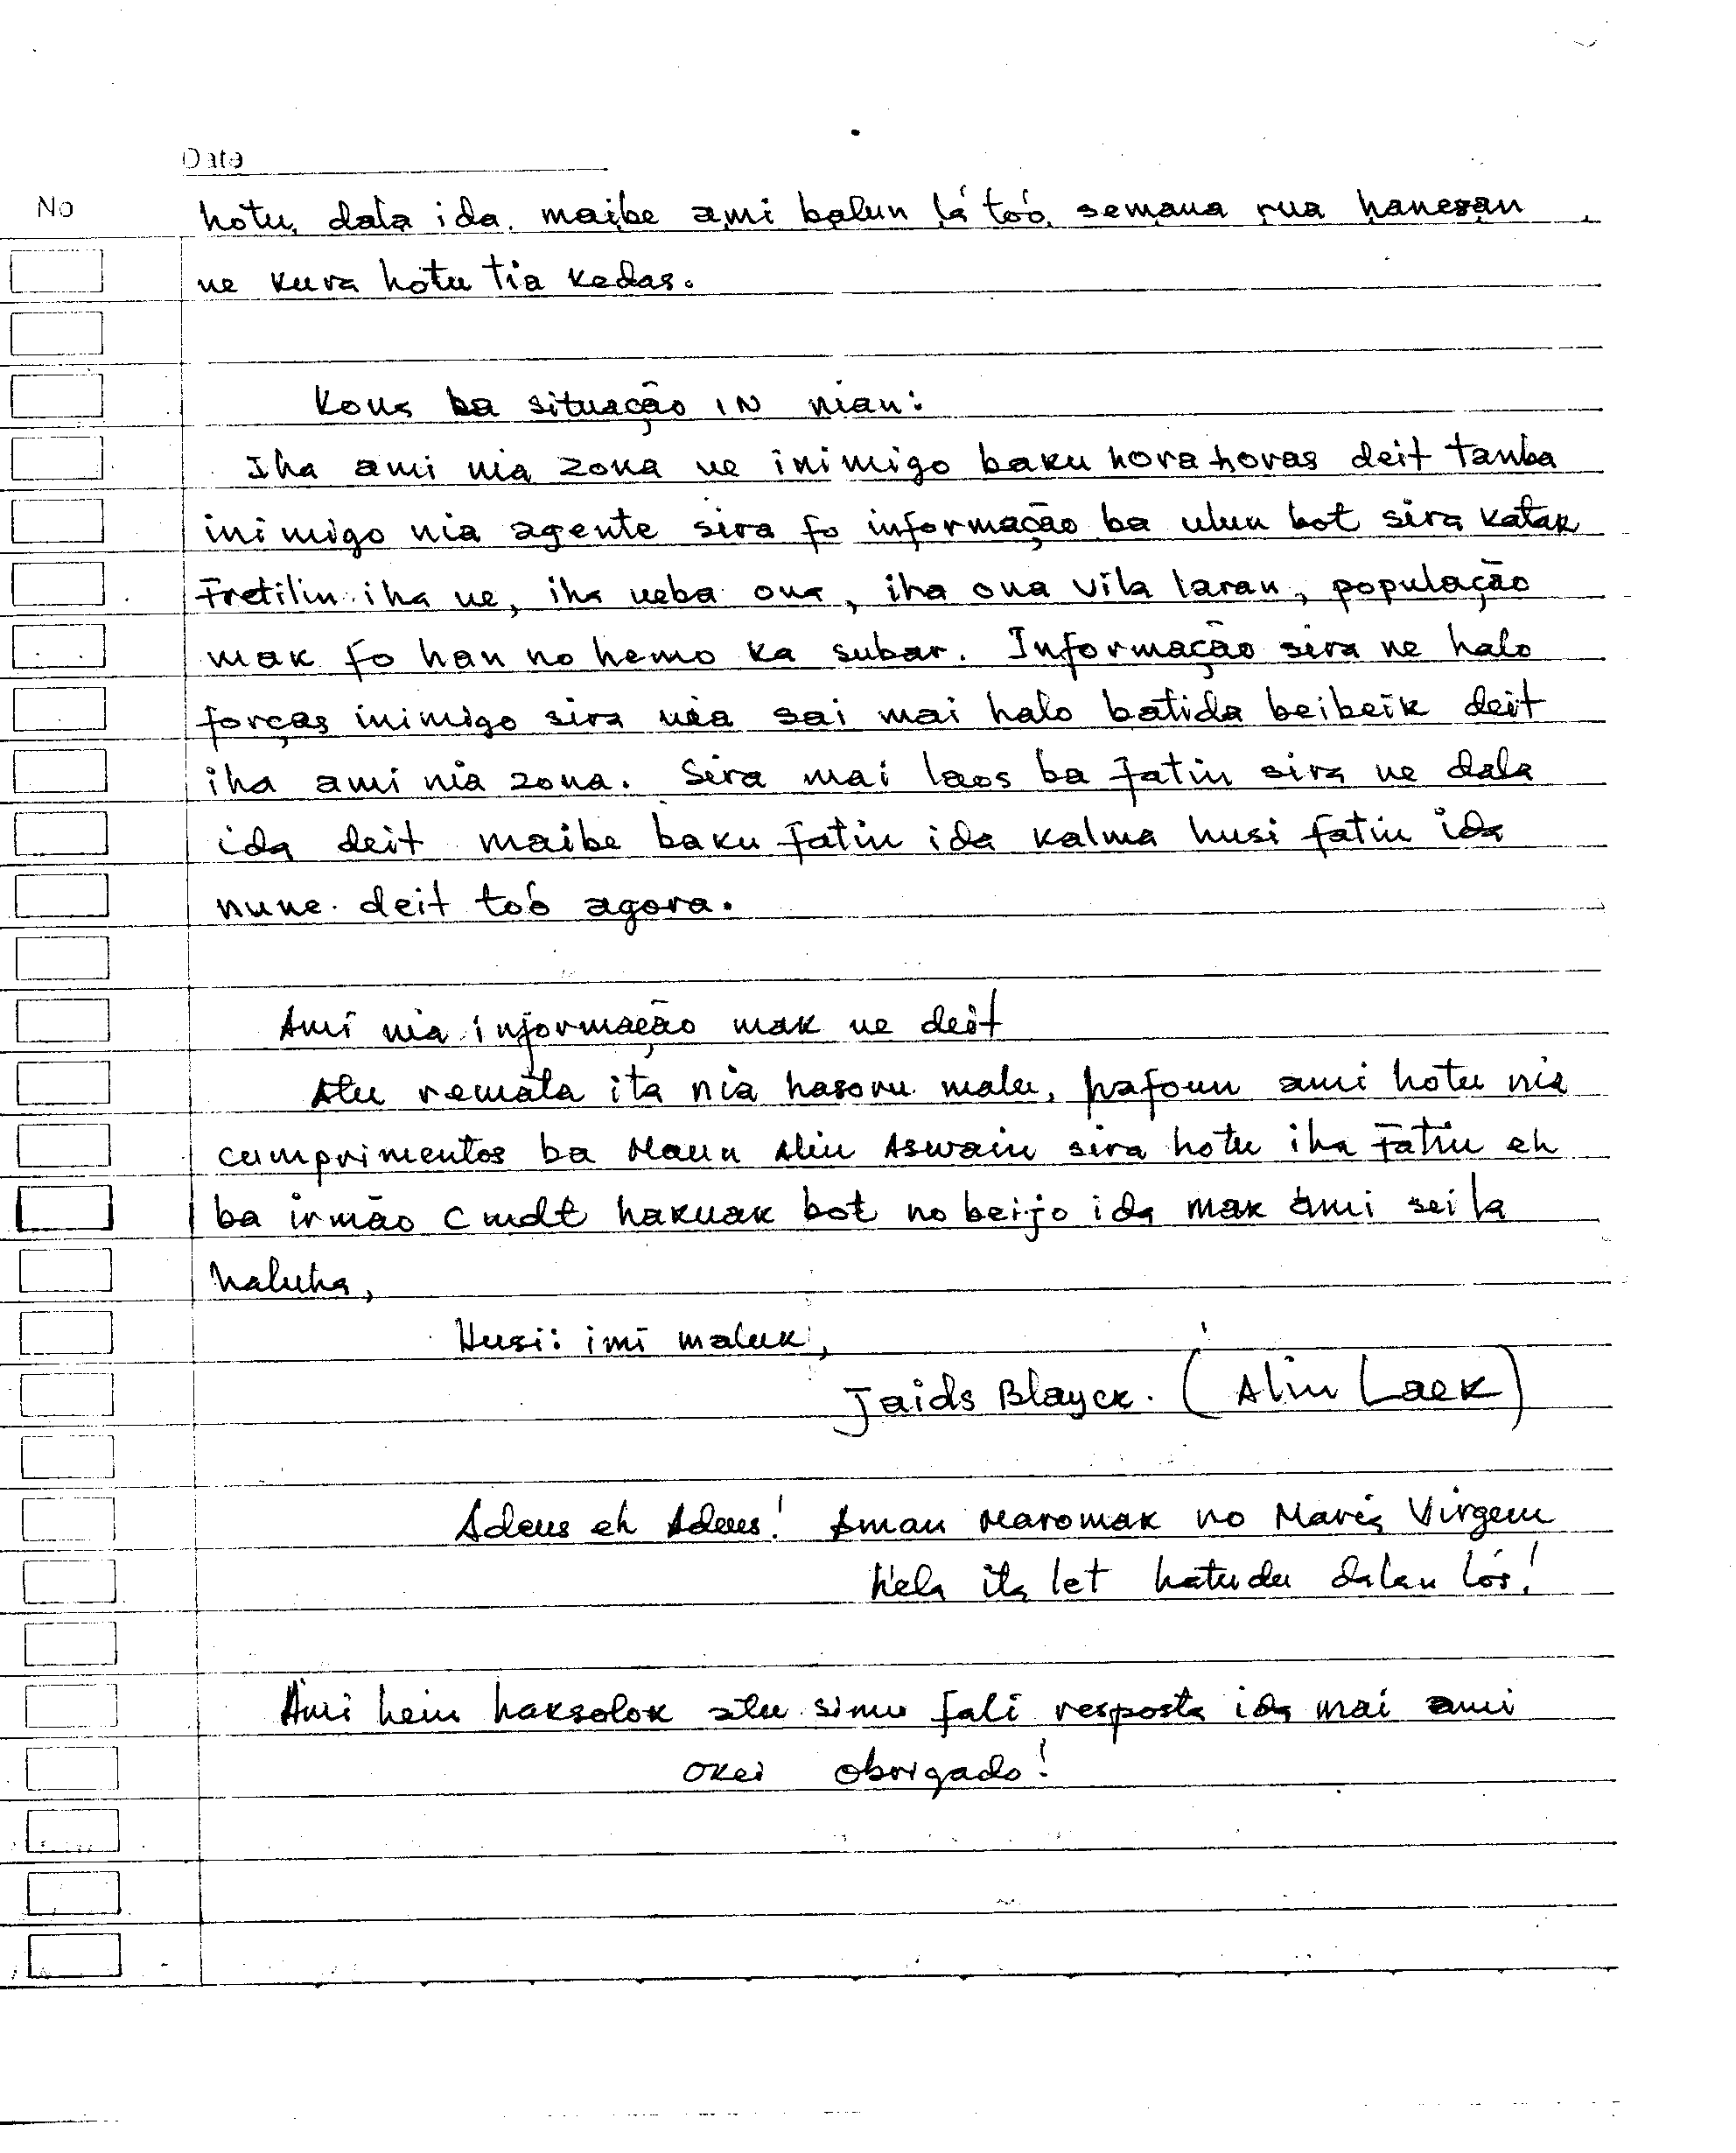 Data
No
hotu, dala ida. maibe ami balun lá toó, semana rua hanesan
ne kura hotu tia kedas.
Kona ba situação IN nian:
Iha ami nia zona ne inimigo baku hora horas deit tanba
inimigo nia agente sira fo informação ba ulun bot sira katak
Fretilin iha ne, iha neba ona, iha ona vila laran, população
mak fo han no hemo ka subar. Informação sira ne halo
forças inimigo sira nia sai mai halo batida beibeik deit
iha ami nia zona. Sira mai laos ba fatin sira ne dala
ida deit maibe baku fatin ida kalma husi fatin ida
nune deit toó agora.
Ami nia informação mak ne deit
Atu remata ita nia hasoru malu, hafoun ami hotu nia
cumprimentos ba Maun Alin Aswain sira hotu iha Fatin eh
ba irmão Cmdt hakuak bot no beijo ida mak ami sei la
haluha,
Husi: imi maluk,
Jaids Blayck. (Alin Laek)
Adeus eh Adeus! Aman Maromak no Maria Virgem
hela ita let hatudu dalan lós!
Ami hein haksolok atu simu fali resposta ida mai ami
okei obrigado!